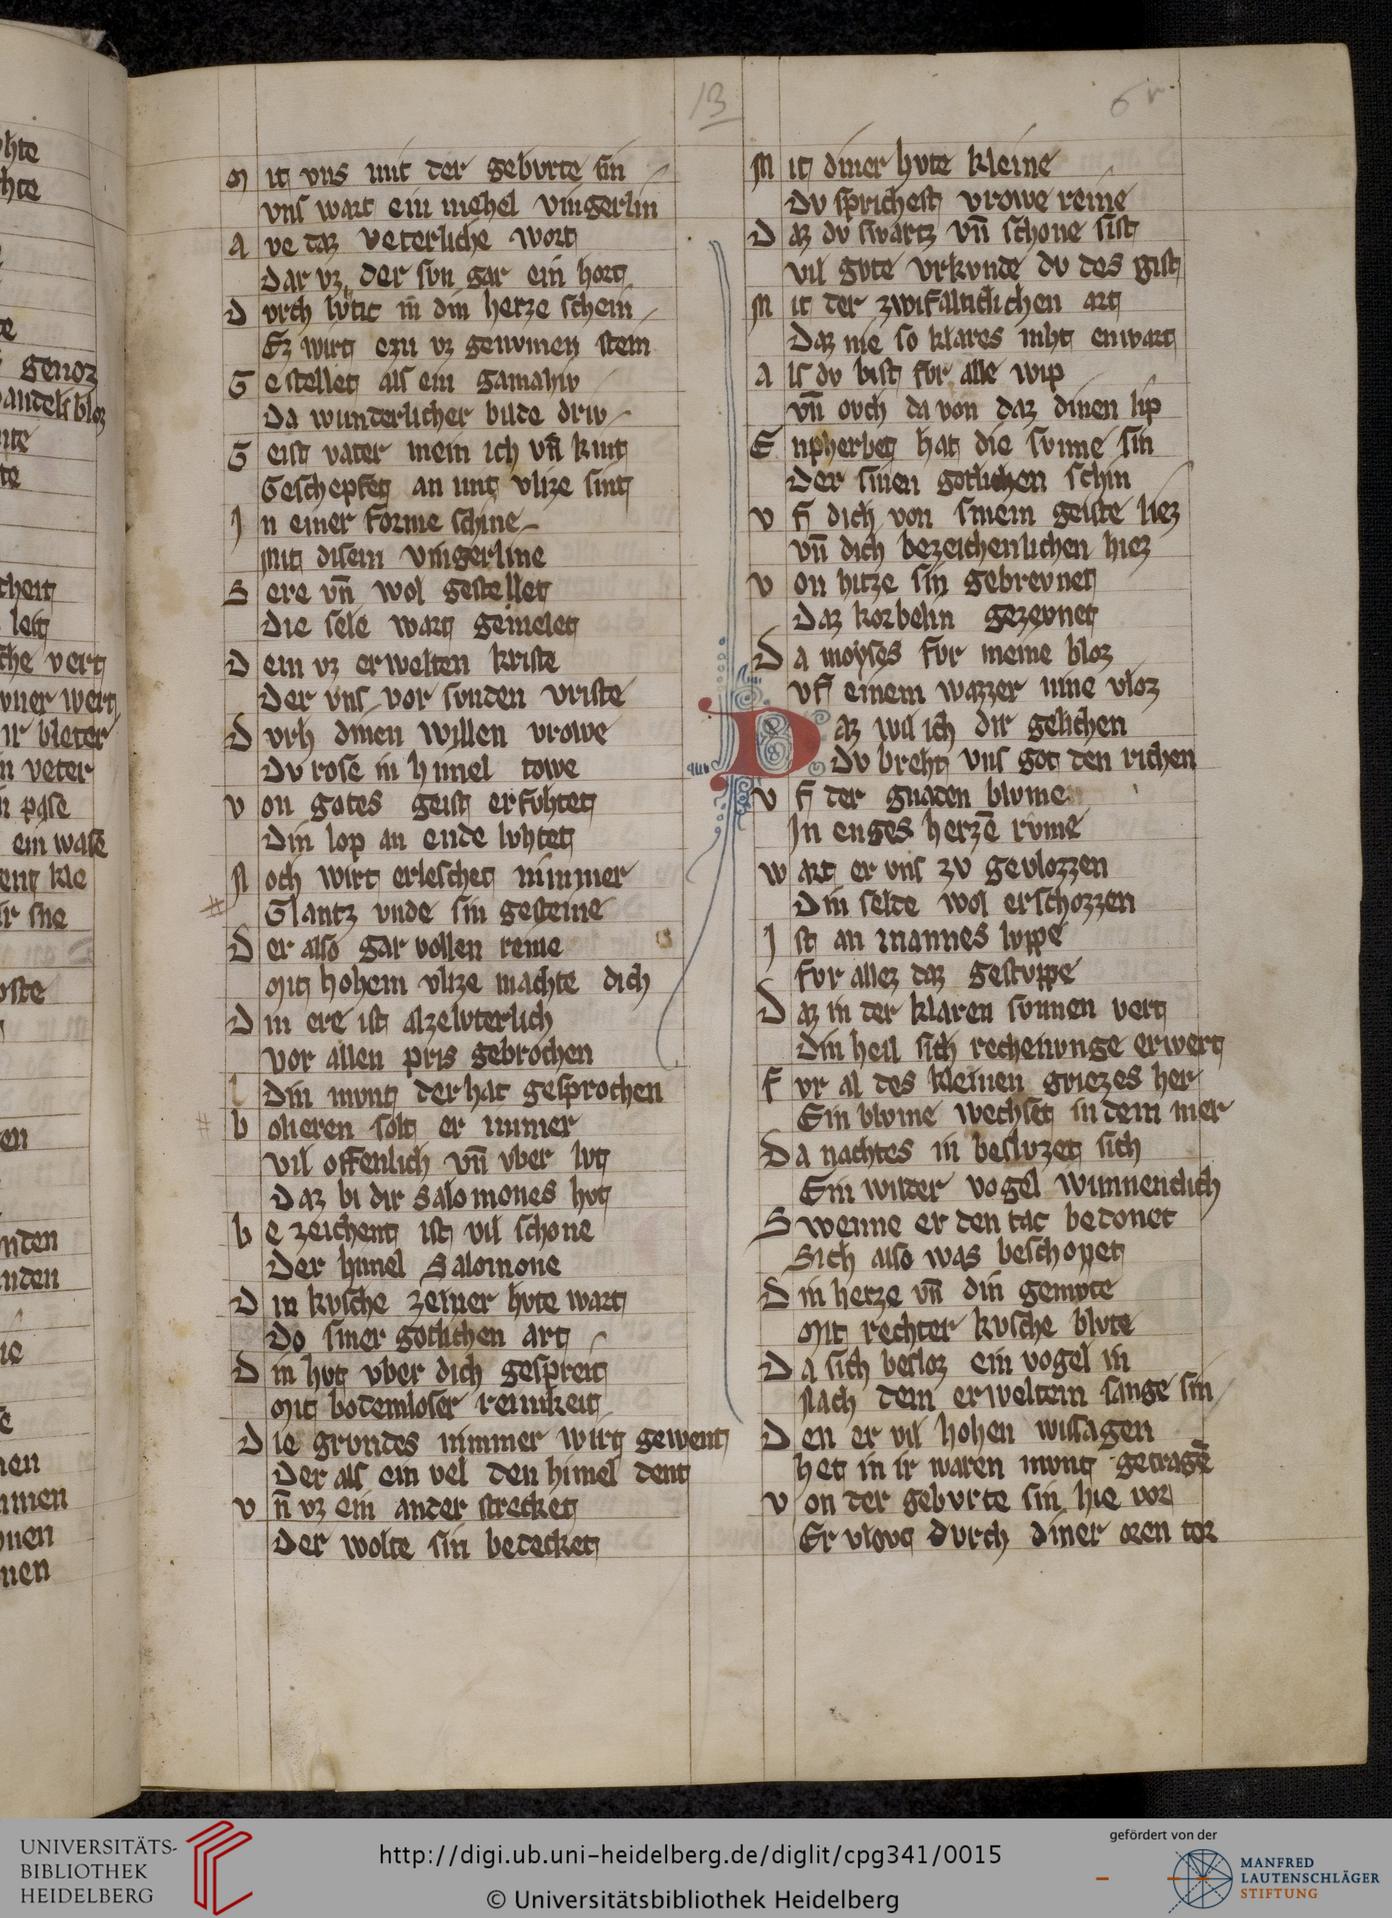 13
6r
Mit vns mit der gebvrte sin
vns wart ein mehel vingerlin
Ave daz veterliche wort
Dar vz der svn gar ein hort
Dvrch lvtic in din herze schein
Ez wirt ezn vz genvmen stein
Gestellet als ein gamahiv
Da wunderlicher bilde driv
Geist vater mein ich vn̄ kint
Geschepfet an unt vlize sint
In einer forme schine
Mit disem vingerline
Sere vn̄ wol gestellet
Die sele wart gemelet
Dem vz erwelten kriste
Der vns vor svnden vriste
Dvrh dinen willen vrowe
Dv rose in himel towe
Von gotes geist erfvhtet
Din lop an ende lvhtet
Noch wirt erleschet nimmer
Glantz vnde sin gesteine
Der also gar vollen reine
Mit hohem vlize machte dich
Din ere ist alzelvterlich
Vor allen pris gebrochen
Din mvnt der hat gesprochen
bolieren solt er immer
Vil offenlich vn̄ vber lvt
Daz bi dir Salomones hvt
bezeichent ist vil schone
Der himel Salomone
Din kvsche zeiner hvte wart
Do siner gotlichen art
Din hvt vber dich gespreit
Mit bodemloser reinikeit
Die grvndes nimmer wirt gewent
Der als ein vel den himel dent
vn̄ vz ein ander strecket
Der wolte sin bedecket
Mit diner hvte kleine
Dv sprichest vrowe reine
Daz dv swartz vn̄ schone sist
Vil gvte vrkvnde dv des gist
Mit der zwifalticlichen art
Daz nie so klares niht enwart
Als dv bist fvr alle wip
vn̄ ovch da von daz dinen lip
Enpherbet hat die svnne sin
Der sinen gotlichen schin
vf dich von sinem geiste liez
vn̄ dich bezeichenlichen hiez
von hitze sin gebrevnet
Daz korbelin gezevnet
Da moyses fvr meine bloz
vf einem wazzer nine vloz
Daz wil ich dir gelichen
Dv breht vns got den richen
vf der gnaden blvme
In enges herzē rvme
wart er vns zv gevlozzen
Din selde wol erschozzen
Ist an mannes lvppe
fvr allez daz gestvppe
Daz in der klaren svnnen vert
Din heil sich rechenvnge erwert
fvr al des kleinen griezes her
Ein blvme wechset in dem mer
Da nachtes in beslvzet sich
Ein wilder vogel wunnenclich
Swenne er den tac bedonet
Sich also was beschonet
Din herze vn̄ din gemvte
Mit rechter kvsche blvte
Da sich besloz ein vogel in
Nach dem erweltem sange sin
Den er vil hohen wissagen
het in ir waren mvnt getragē
von der gebvrte sin hie vor
Er vlovg dvrch diner oren tor
UNIVERSITÄTS-
BIBLIOTHEK
HEIDELBERG
http://digi.ub.uni-heidelberg.de/diglit/cpg341/0015
© Universitätsbibliothek Heidelberg
gefördert von der
MANFRED
LAUTENSCHLÄGER
STIFTUNG